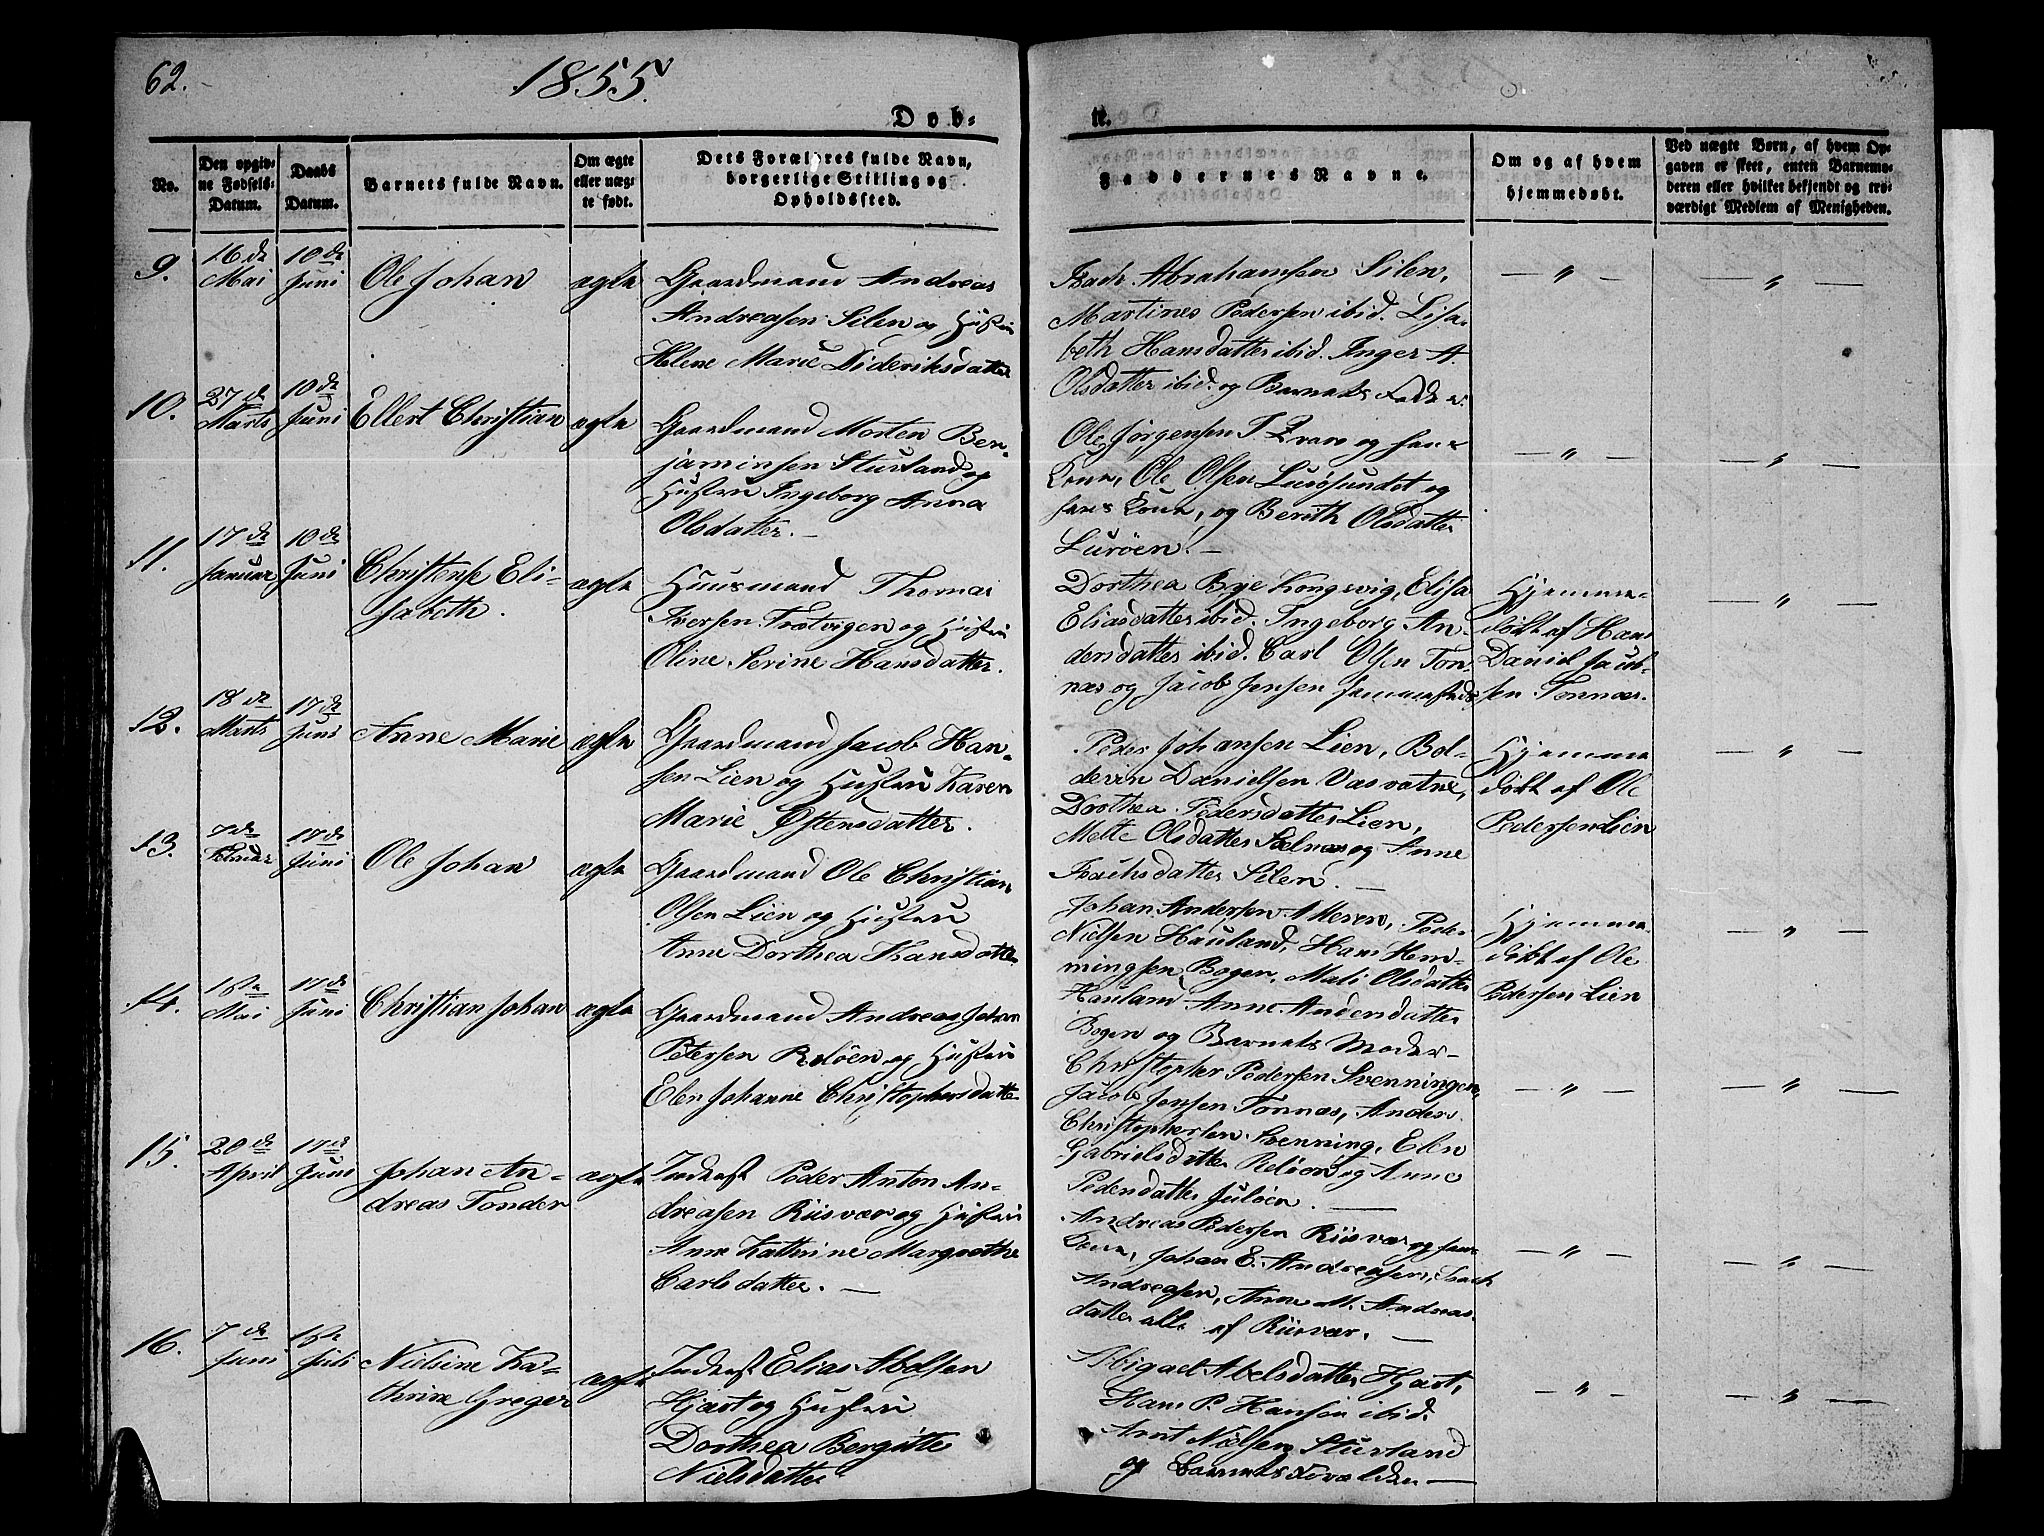 62.
1855.
Døb-
te.
No.
Den opgiv-
ne Fødsels-
Datum.
Daabs
Datum.
Barnets fulde Navn.
Om ægte
eller uæg-
te født.
Dets Forældres fulde Navn,
borgerlige Stilling og
Opholdssted.
Faddernes Navne.
Om og af hvem
hjemmedøbt.
Ved uægte Børn, af hvem Op-
gaven er skeet, enten Barnemo-
deren eller hvilket bekjendt og tro-
værdigt Medlem af Menigheden.
9.
16de
Mai
10de
Juni
Ole Johan
ægte
Gaardmand Andreas
Andreasen Silen og Hustru
Helene Marie Dideriksdatter
Isach Abrahamsen Silen,
Martines Pedersen ibid. Lisa-
beth Hansdatter ibid. Inger A.
Olsdatter ibid. og Barnets Fader.
— " —
— " —
10.
27de
Marts
10de
Juni
Ellert Christian
ægte
Gaardmand Morten Ben-
jaminsen Stuvland og
Hustru Ingeborg Anna
Olsdatter. —
Ole Jørgensen og hans
Kone, Ole Olsen Lurøsundet og
hans Kone, og Berith Olsdatter
Lurøen. —
— " —
— " —
11.
17de
Januar
10de
Juni
Christense Eli-
sabeth.
ægte
Huusmand Thomas
Iversen Trætvigen og Hustru
Oline Serine Hansdatter.
Dorthea Bye Kongsvig, Elisa
Eliasdatter ibid. Ingeborg An-
dersdatter ibid. Carl Olsen Ton-
næs og Jacob Jensen sammesteds
Hjemme-
døbt af Hans
Daniel Jacob-
sen Tonnæs.
— " —
12.
18de
Marts
17de
Juni
Anne Marie
ægte
Gaardmand Jacob Han-
sen Lien og Hustru Karen
Marie Østensdatter.
Peder Johansen Lien, Bol-
devin Danielsen Vasvatne,
Dorthea Pedersdatter Lien,
Mette Olsdatter Selnæs og Anne
Isachsdatter Silen. —
Hjemme
døbt af Ole
Pedersen Lien
— " —
13.
7de
Februar
17de
Juni
Ole Johan
ægte
Gaardmand Ole Christian
Olsen Lien og Hustru
Anne Dorthea Hansdatter
Johan Andersen Alteren, Peder
Nielsen Hauland, Hans Hem-
mingsen Bogen, Mali Olsdatter
Hauland Anne Andersdatter
Bogen og Barnets Moder —
Hjemme
døbt af Ole
Pedersen Lien
— " —
14.
1ste
Mai
17de
Juni
Christian Johan
ægte
Gaardmand Andreas Johan
Petersen Reløen og Hustru
Elen Johanne Christophersdatter
Christopher Pedersen Svenningen,
Jacob Jensen Tonnæs, Anders
Christophersen Svenning, Elen
Gabrielsdatter Reløen og Anne
Pedersdatter Juløen. —
— " —
— " —
15.
20de
April
17de
Juni
Johan An-
dreas Tonder
ægte
Inderst Peder Anton An-
dreasen Riisvær og Hustru
Anne Kathrine Margrethe
Carlsdatter. —
Andreas Pedersen Riisvær og hans
Kone, Johan E. Andreasen, Isach
Andreasen, Anne M. Andreas-
datter alle af Riisvær. —
— " —
— " —
16.
7de
Juni
1ste
Juli
Nielsine Ka-
thrine Greger
ægte
Inderst Elias Abelsen
Hjart og Hustru
Dorthea Bergitte
Nielsdatter
Abigael Abelsdatter Hjart,
Hans P. Hansen ibid.
Arnt Nielsen Stuvland
og Barnets Forældre —
— " —
— " —